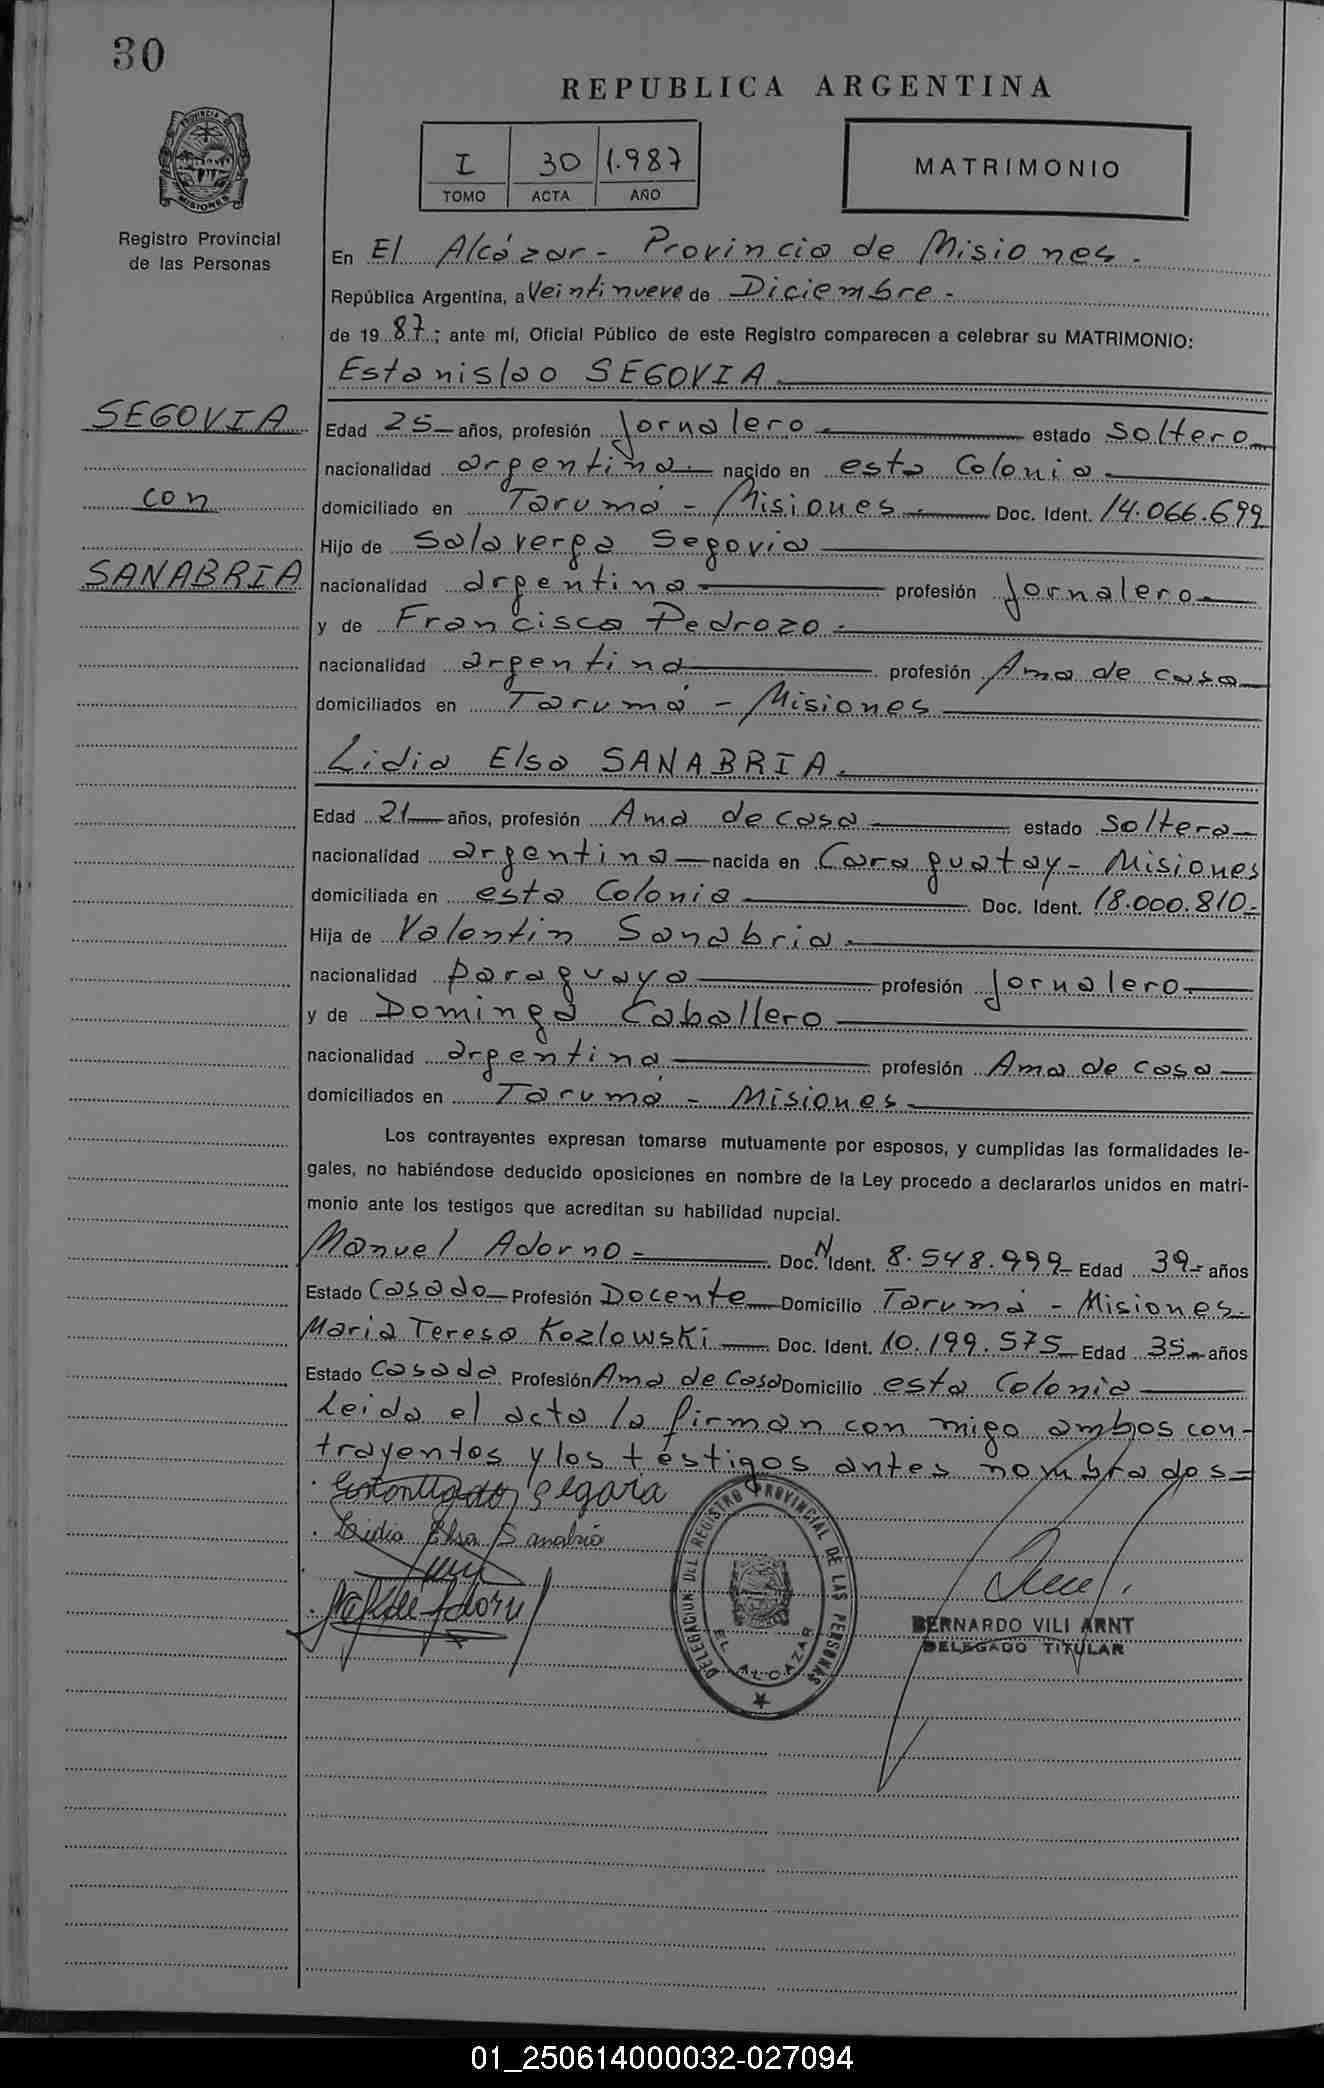 30
REPUBLICA ARGENTINA
PROVINCIA D MISIONES
I 30 1.987
TOMO ACTA AÑO
MATRIMONIO
Registro Provincial
de las Personas
En El Alcázar - Provincia de Misiones.
República Argentina, a Veintinueve de Diciembre -
de 19 87.; ante mí, Oficial Público de este Registro comparecen a celebrar su MATRIMONIO:
Estanislao SEGOVIA
SEGOVIA
con
SANABRIA
Edad 25 años, profesión Jornalero estado soltero
nacionalidad argentina nacido en esta Colonia
domiciliado en Tarumá - Misiones. Doc. Ident. 14.066.699
Hijo de Salaverga Segovia
nacionalidad argentina profesión Jornalero
y de Francisca Pedrozo.
nacionalidad argentina profesión Ama de casa
domiciliados en Tarumá - Misiones
Lidia Elsa SANABRIA.
Edad 21 años, profesión Ama de casa estado soltera
nacionalidad argentina nacida en Caraguatay - Misiones
domiciliada en esta Colonia Doc. Ident. 18.000.810-
Hija de Valentin Sanabria.
nacionalidad paraguaya profesión Jornalero
y de Dominga Caballero
nacionalidad argentina profesión Ama de casa
domiciliados en Tarumá - Misiones
Los contrayentes expresan tomarse mutuamente por esposos, y cumplidas las formalidades le-
gales, no habiéndose deducido oposiciones en nombre de la Ley procedo a declararlos unidos en matri-
monio ante los testigos que acreditan su habilidad nupcial.
Manuel Adorno - Doc. N Ident. 8.548.999 Edad 39 años
Estado Casado Profesión Docente Domicilio Tarumá - Misiones.
Maria Teresa Kozlowski Doc. Ident. 10.199.575 Edad 35 años
Estado Casada Profesión Ama de Casa Domicilio esta Colonia
Leida el acta la firman con migo ambos con-
trayentes y los testigos antes nombrados=
Lidia Elsa Sanabria
DELEGACION DEL REGISTRO PROVINCIAL DE LAS PERSONAS
EL ALCAZAR
BERNARDO VILI ARNT
DELEGADO TITULAR
01_250614000032-027094